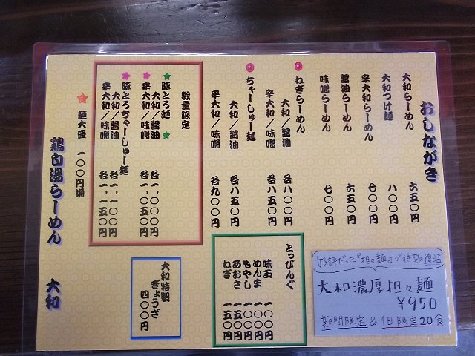 おしながき
大和らーめん 六五〇円
大和つけ麺 八〇〇円
辛大和らーめん 七〇〇円
醤油らーめん 六五〇円
味噌らーめん 七〇〇円
ねぎらーめん
大和/醤油 各八〇〇円
辛大和/味噌 各八五〇円
ちゃーしゅー麺
大和/醤油 各八五〇円
辛大和/味噌 各九〇〇円
数量限定
豚とろ麺
大和/醤油 各一、〇〇〇円
辛大和/味噌 各一、〇五〇円
豚とろちゃーしゅー麺
大和/醤油 各一、一〇〇円
辛大和/味噌 各一、一五〇円
麺大盛 一〇〇円増
とっぴんぐ
味玉 一〇〇円
めんま 一〇〇円
もやし 一〇〇円
のり
ねぎ 一五〇円
大和特製
ぎょうざ
四〇〇円
大和濃厚担々麺
¥950
期間限定&1日限定20食
鶏白湯らーめん 大和